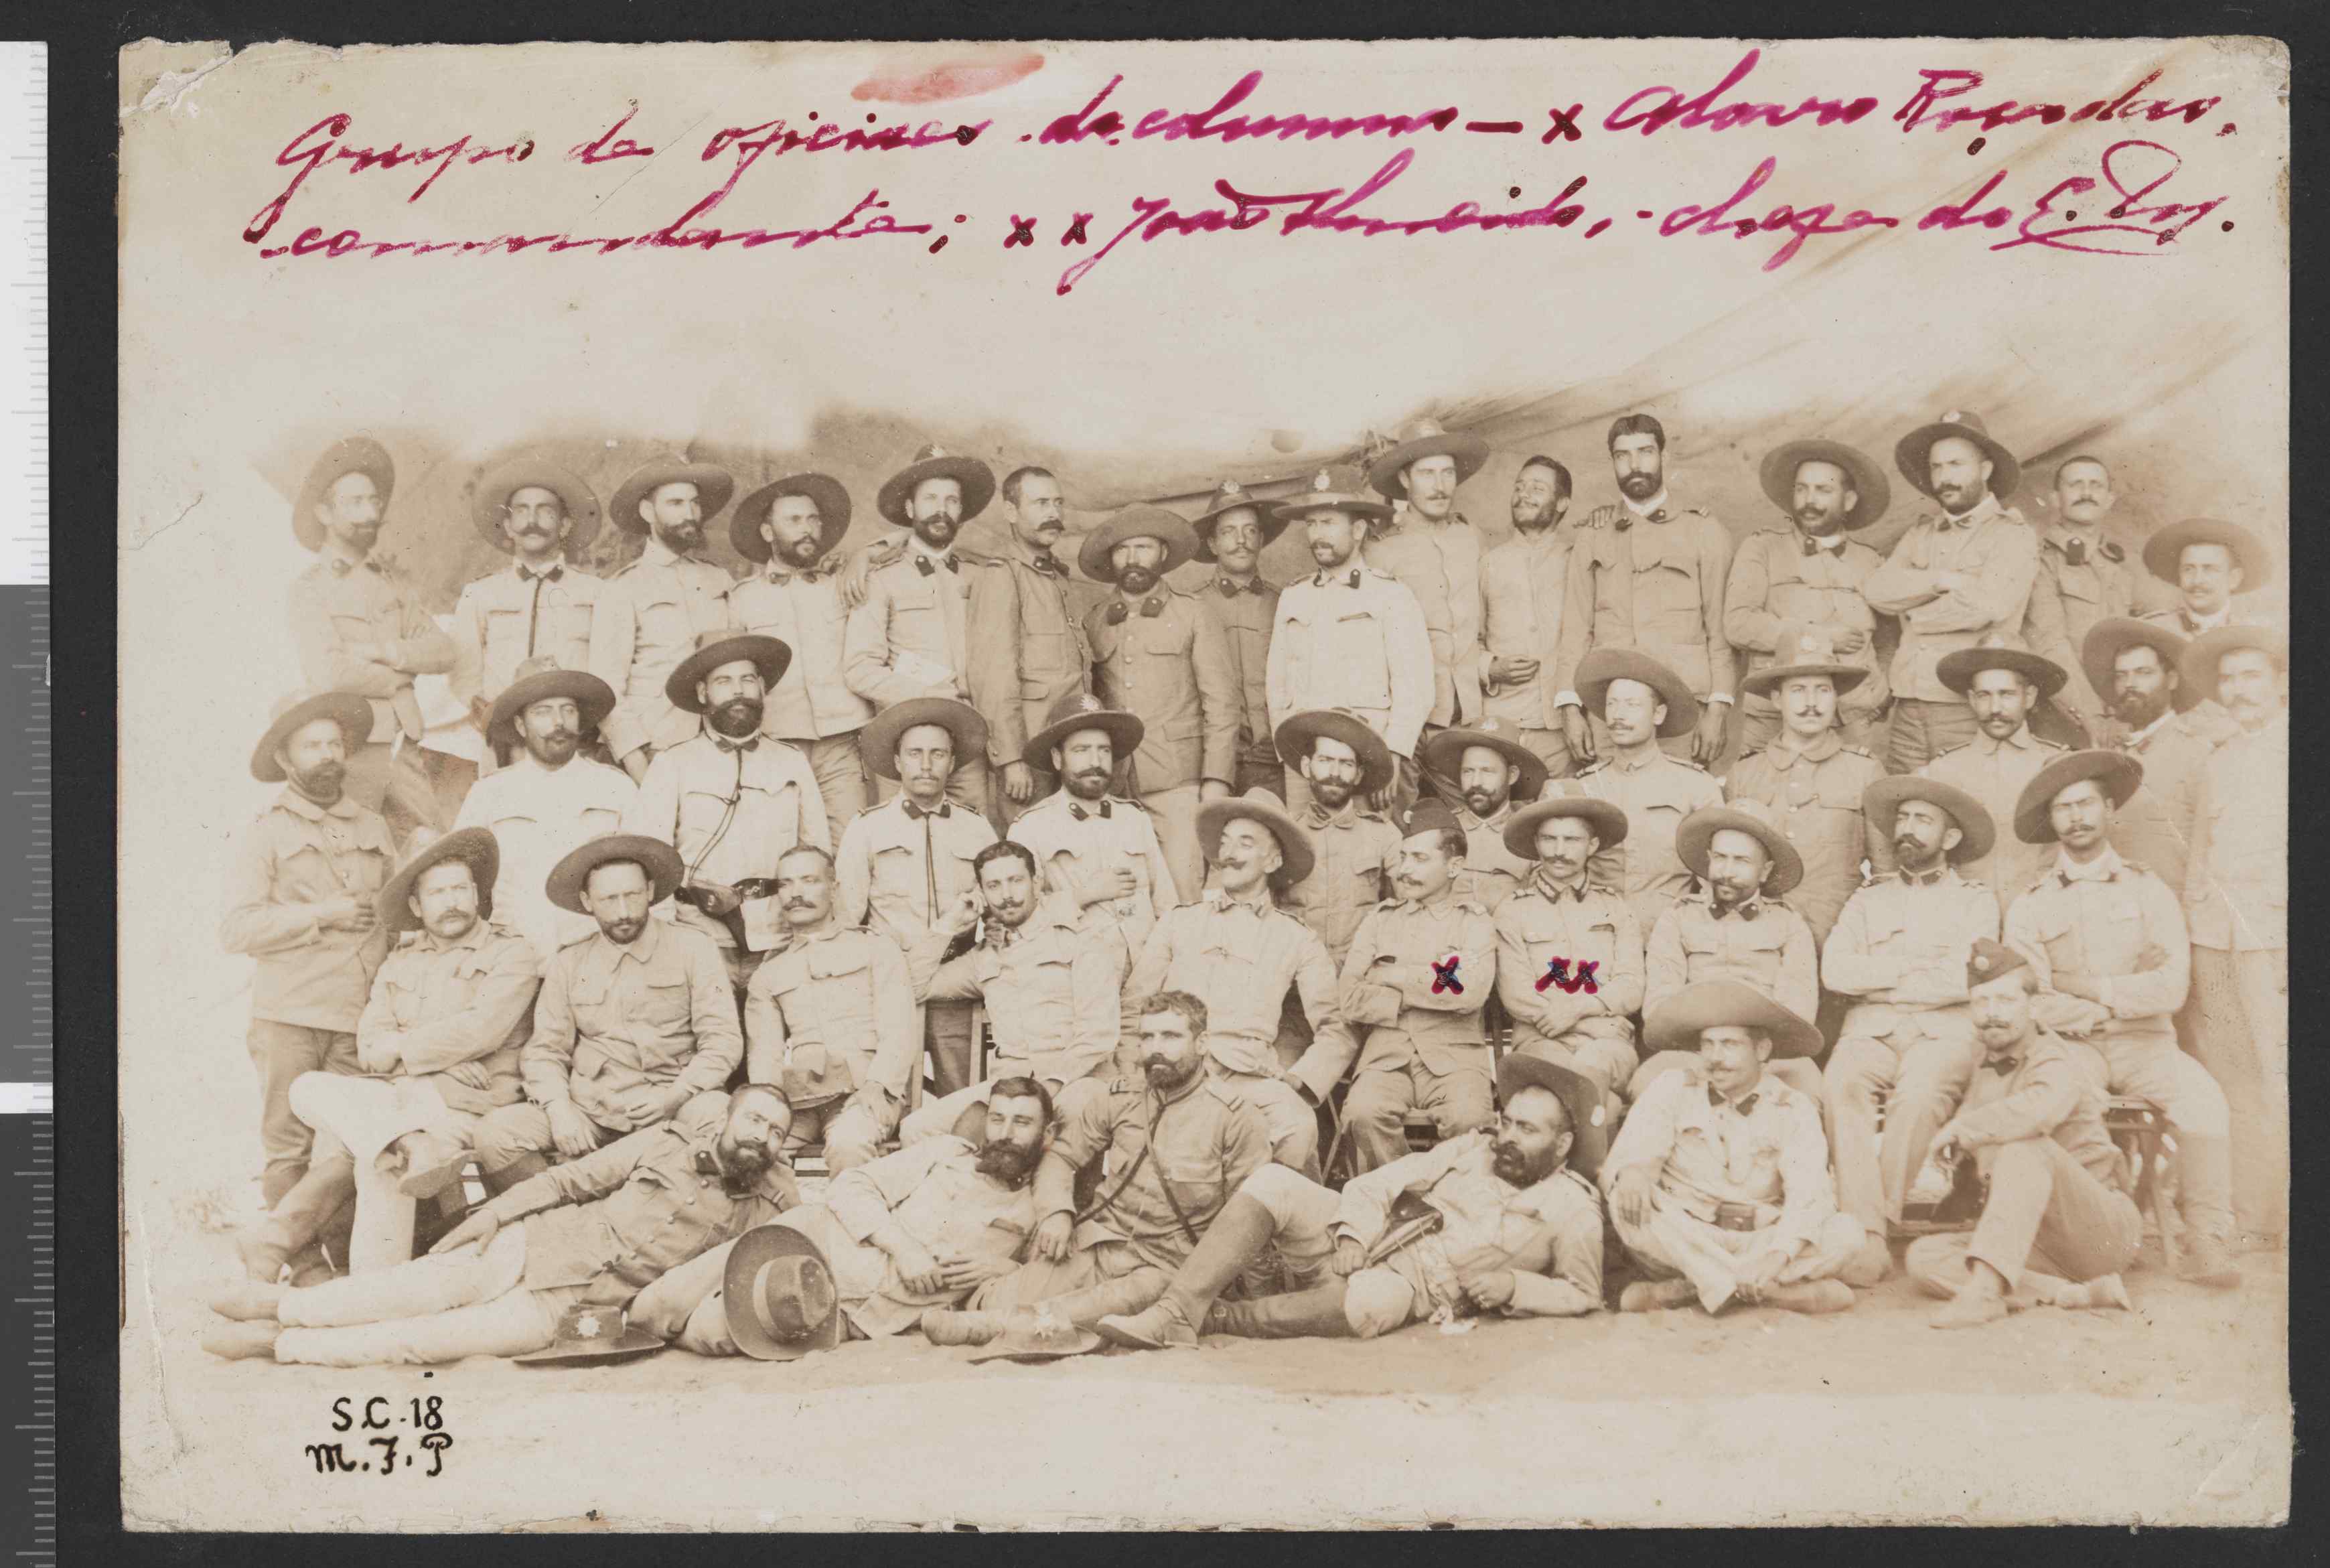 Grupo de oficiaes da columna — x Alves Roçadas,
commandante; x x João Almeida, - chefe do E. M.
x xx
S.C.18
M.F.P